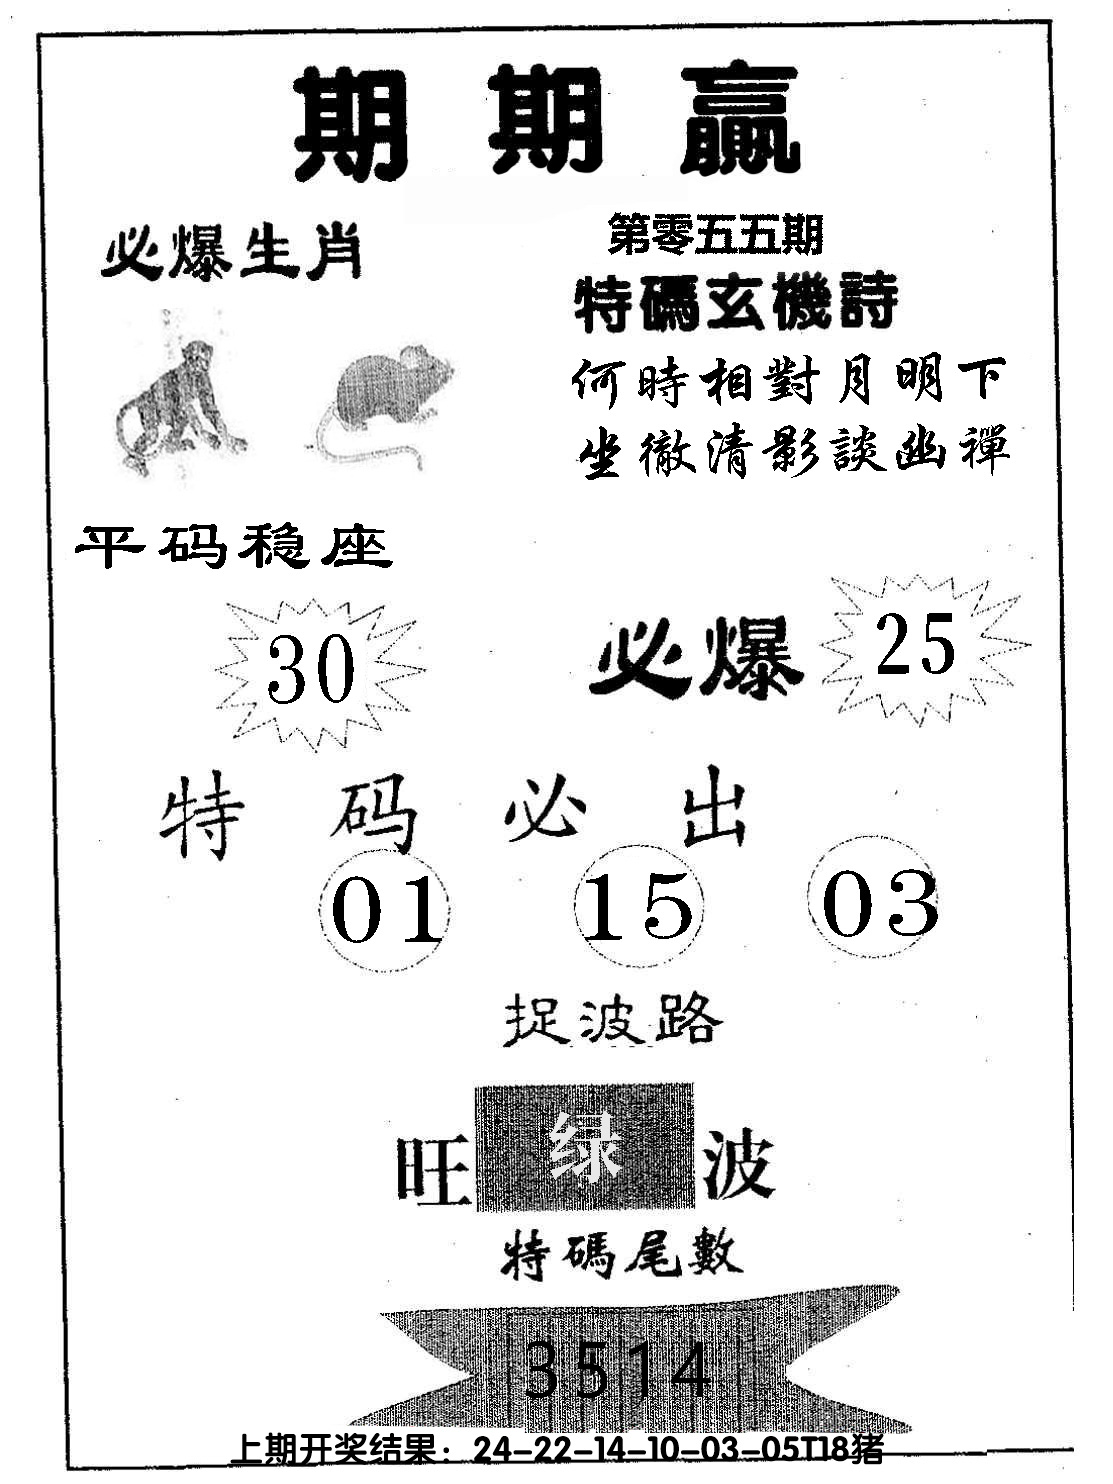 期期贏
必爆生肖
第零五五期
特碼玄機詩
何時相對月明下
坐徹清影談幽禪
平码稳座
30
必爆 25
特码必出
01 15 03
捉波路
旺 绿 波
特碼尾數
3514
上期开奖结果：24-22-14-10-03-05T18猪